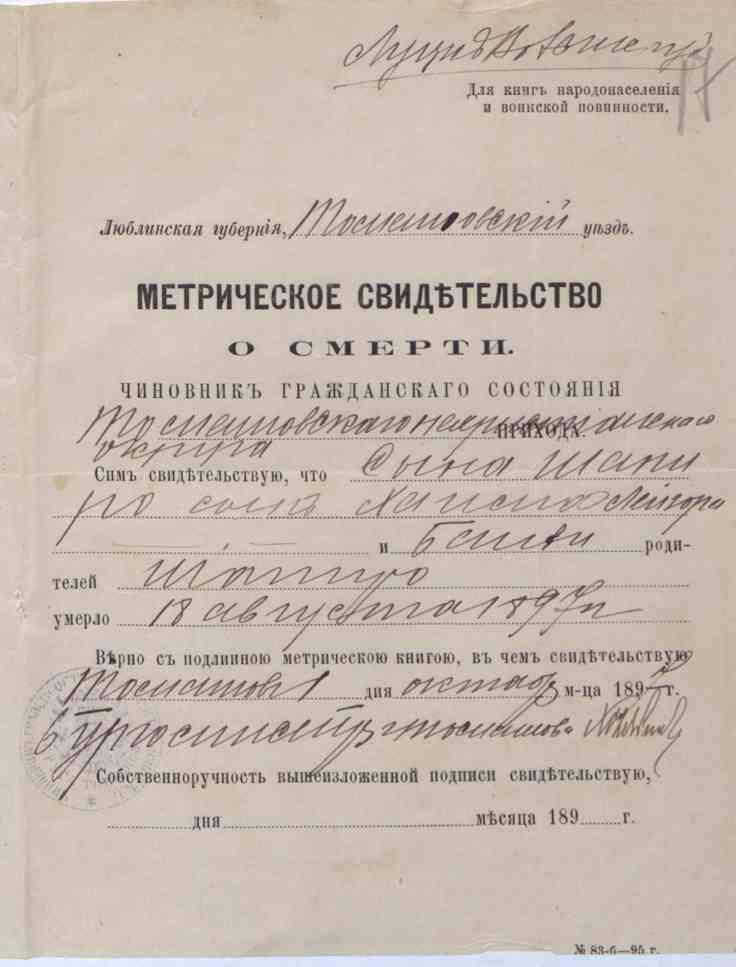 Для книгъ народонаселенія
и воинской повинности.
17
Люблинская губернія, Томашовскій уѣздъ.
МЕТРИЧЕСКОЕ СВИДѢТЕЛЬСТВО
О СМЕРТИ.
ЧИНОВНИКЪ ГРАЖДАНСКАГО СОСТОЯНІЯ
Томашовскаго нехристіанскаго
округа ПРИХОДА.
Симъ свидѣтельствую, что сына Шапи
ро
и роди-
телей Шапиро
умерло 18 августа 1897 г.
Вѣрно съ подлинною метрическою книгою, въ чемъ свидѣтельствую
Томашовъ 1 дня октяб. м-ца 1897 г.
Бургомистръ г. Томашова
Собственноручность вышеизложенной подписи свидѣтельствую,
дня мѣсяца 189 г.
№ 83-б—95 г.